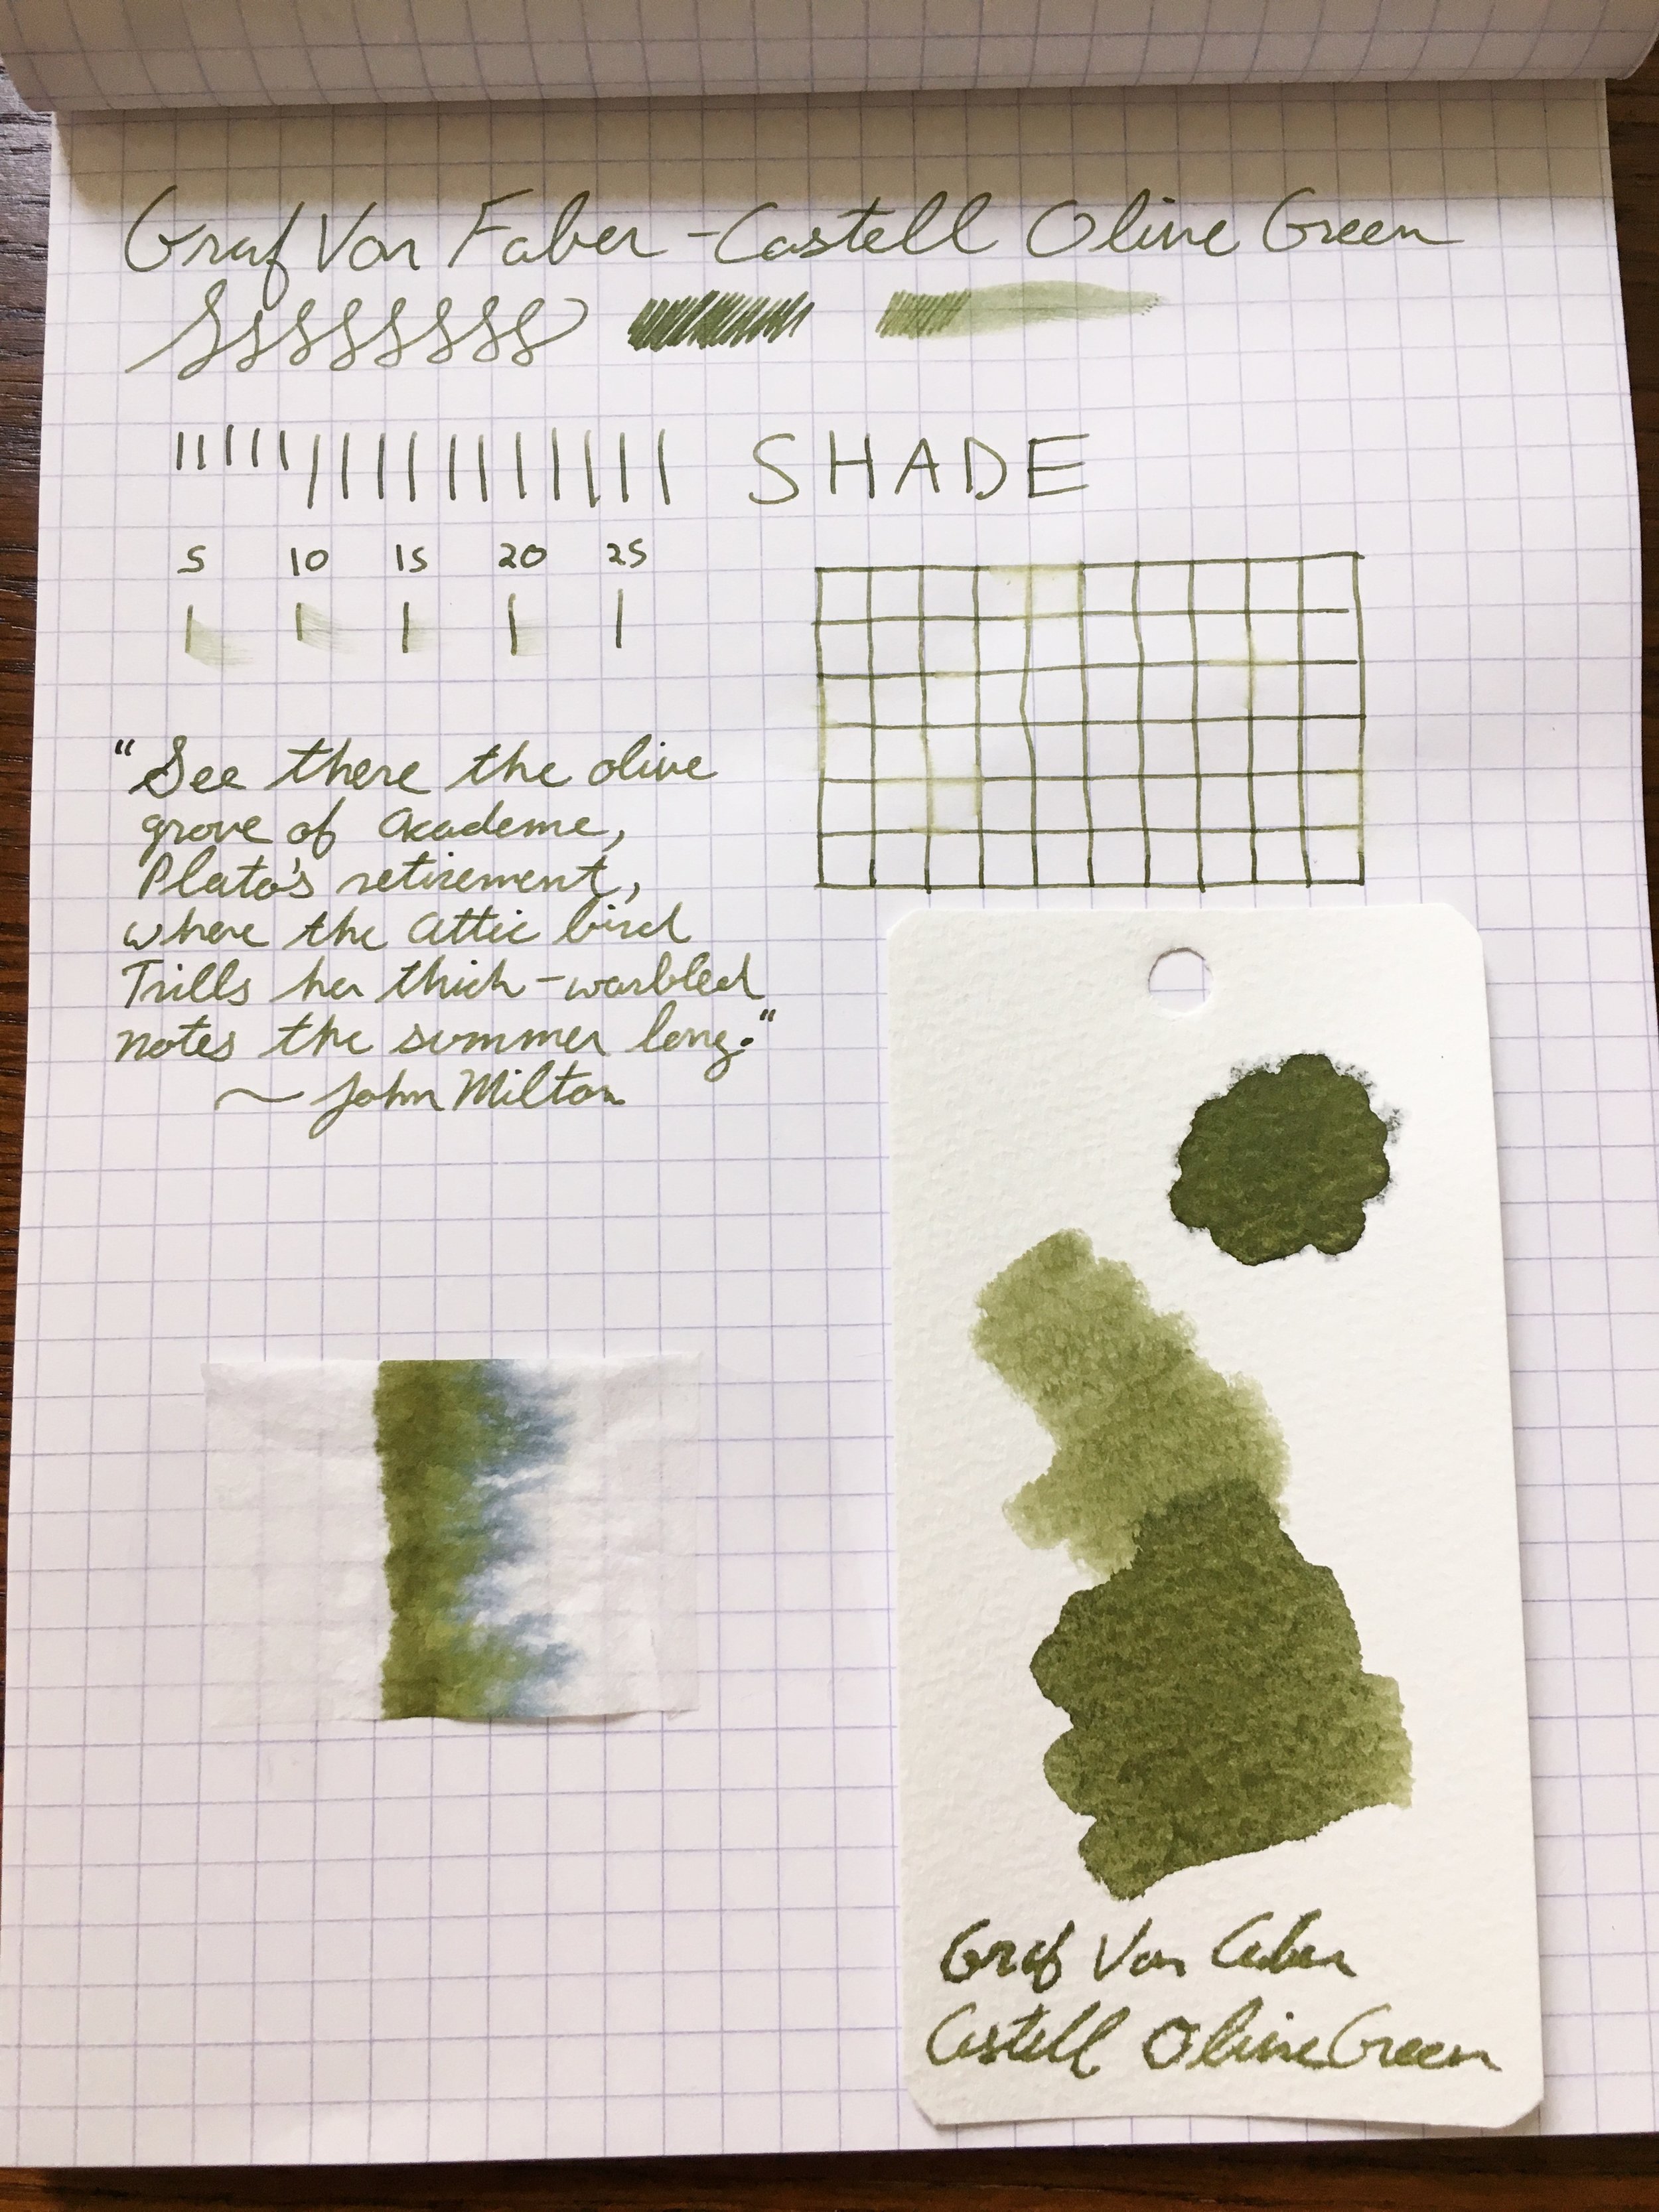 Graf Von Faber-Castell Olive Green
SHADE
5 10 15 20 25
"See there the olive
grove of Academe,
Plato's retirement,
where the Attic bird
Trills her thick-warbled
notes the summer long."
~ John Milton
Graf Von Faber
Castell Olive Green